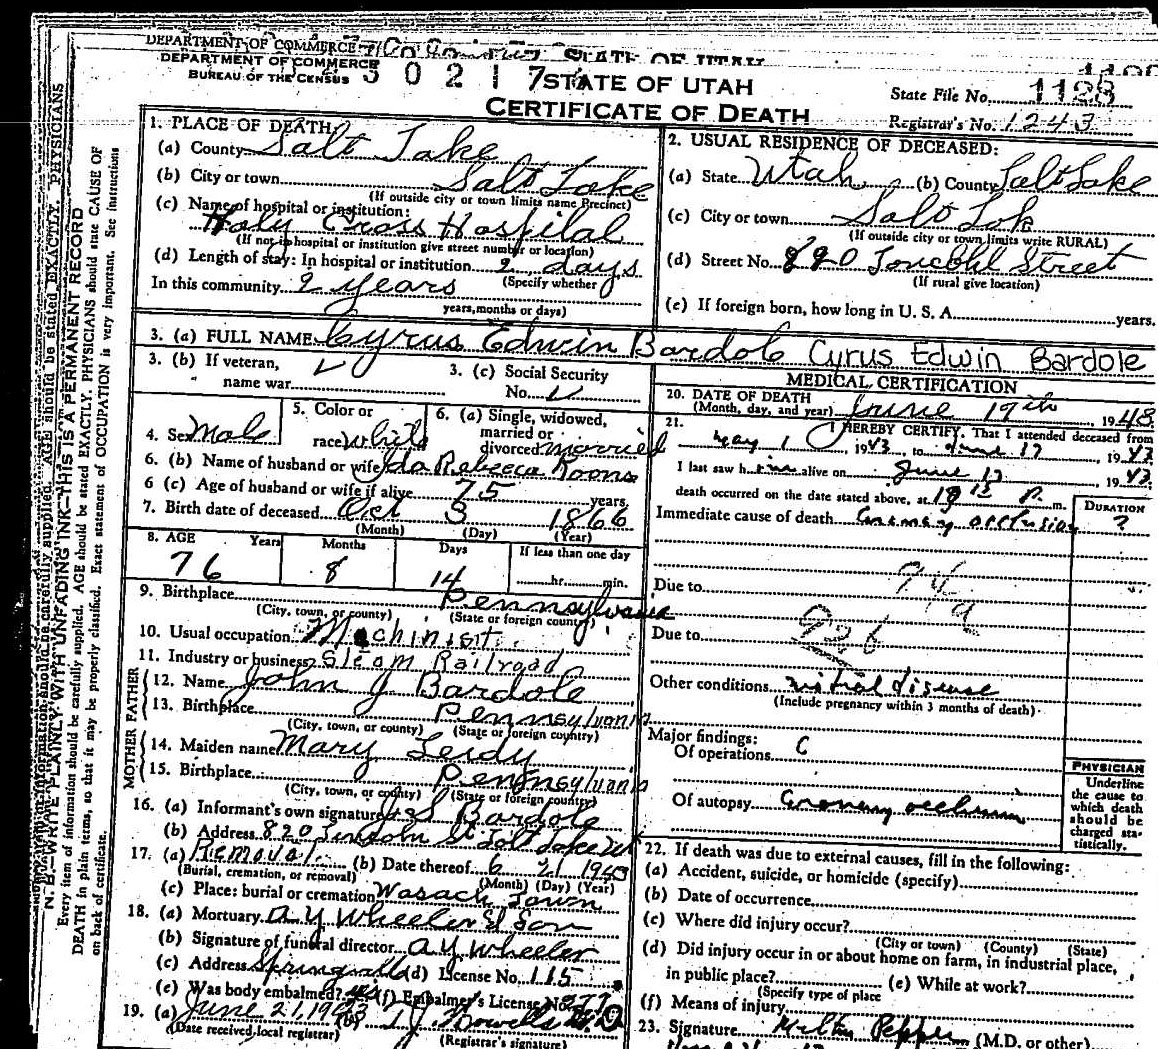 DEPARTMENT OF COMMERCE STATE OF UTAH
DEPARTMENT OF COMMERCE
BUREAU OF THE CENSUS 3 0 2 1 7 STATE OF UTAH
CERTIFICATE OF DEATH
State File No. 1128
Registrar's No. 1243
1. PLACE OF DEATH:
(a) County Salt Lake
(b) City or town Salt Lake
(If outside city or town limits name Precinct)
(c) Name of hospital or institution:
Holy Cross Hospital
(If not in hospital or institution give street number or location)
(d) Length of stay: In hospital or institution 2 days
(Specify whether
In this community 2 years
years, months or days)
2. USUAL RESIDENCE OF DECEASED:
(a) State Utah (b) County Salt Lake
(c) City or town Salt Lak
(If outside city or town limits write RURAL)
(d) Street No. 820 Street
(If rural give location)
(e) If foreign born, how long in U. S. A. years.
3. (a) FULL NAME Cyrus Edwin Bardole Cyrus Edwin Bardole
3. (b) If veteran,
name war
3. (c) Social Security
No.
4. Sex Male
5. Color or
race white
6. (a) Single, widowed,
married or
divorced married
6. (b) Name of husband or wife Ida Rebecca Koons
6 (c) Age of husband or wife if alive 75 years.
7. Birth date of deceased Oct 3 1866
(Month) (Day) (Year)
8. AGE Years Months Days If less than one day
76 8 14 hr. min.
9. Birthplace Pennsylvania
(City, town, or county) (State or foreign country)
10. Usual occupation Machinist
11. Industry or business Steam Railroad
FATHER
12. Name John J Bardole
13. Birthplace Pennsylvania
(City, town, or county) (State or foreign country)
MOTHER
14. Maiden name Mary Leidy
15. Birthplace Pennsylvania
(City, town, or county) (State or foreign country)
16. (a) Informant's own signature Bardole
(b) Address 820 Lincoln St Salt Lake Ut
17. (a) Removal (b) Date thereof 6 21 19
(Burial, cremation, or removal) (Month) (Day) (Year)
(c) Place: burial or cremation Wasach Lawn
18. (a) Mortuary A Y Wheeler & Son
(b) Signature of funeral director A Y Wheeler
(c) Address Springville (d) License No. 115
(e) Was body embalmed? yes (f) Embalmer's License No.
19. (a) June 21, 1943 (b) T. J. Howells M.D.
(Date received, local registrar) (Registrar's signature)
MEDICAL CERTIFICATION
20. DATE OF DEATH
(Month, day, and year) June 17th 1943.
21. I HEREBY CERTIFY, That I attended deceased from
May 1 1943, to June 17 1943
I last saw him alive on June 17 1943
death occurred on the date stated above, at P. m.
DURATION
Immediate cause of death Coronary occlusion ?
Due to 94a
Due to 926
Other conditions mitral disease
(Include pregnancy within 3 months of death)
Major findings:
Of operations
Of autopsy Coronary occlusion
PHYSICIAN
Underline
the cause to
which death
should be
charged sta-
tistically.
22. If death was due to external causes, fill in the following:
(a) Accident, suicide, or homicide (specify)
(b) Date of occurrence
(c) Where did injury occur?
(City or town) (County) (State)
(d) Did injury occur in or about home on farm, in industrial place,
in public place? (e) While at work?
(Specify type of place
(f) Means of injury
23. Signature Milton Pepper (M.D. or other)
N. B.—WRITE PLAINLY WITH UNFADING INK—THIS IS A PERMANENT RECORD
Every item of information should be carefully supplied. AGE should be stated EXACTLY. PHYSICIANS should state CAUSE OF
DEATH in plain terms, so that it may be properly classified. Exact statement of OCCUPATION is very important. See instructions
on back of certificate.